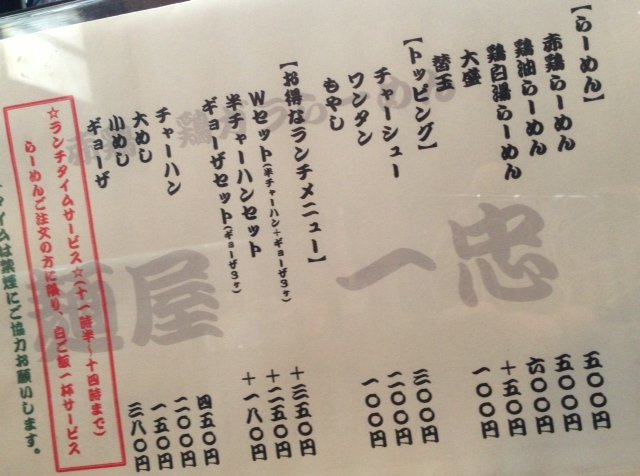 【らーめん】
赤鶏らーめん 五〇〇円
鶏油らーめん 五〇〇円
鶏白湯らーめん 六〇〇円
大盛 +一五〇円
替玉 一〇〇円
【トッピング】
チャーシュー 三〇〇円
ワンタン 二〇〇円
もやし 一〇〇円
【お得なランチメニュー】
Wセット(半チャーハン+ギョーザ3ヶ) +三五〇円
半チャーハンセット +二五〇円
ギョーザセット(ギョーザ3ヶ) +一八〇円
チャーハン 四五〇円
大めし 二〇〇円
小めし 一五〇円
ギョーザ 三八〇円
☆ランチタイムサービス☆(十一時半~十四時まで)
らーめんご注文の方に限り、白ご飯一杯サービス
タイムは禁煙にご協力お願いします。
麺屋 一忠